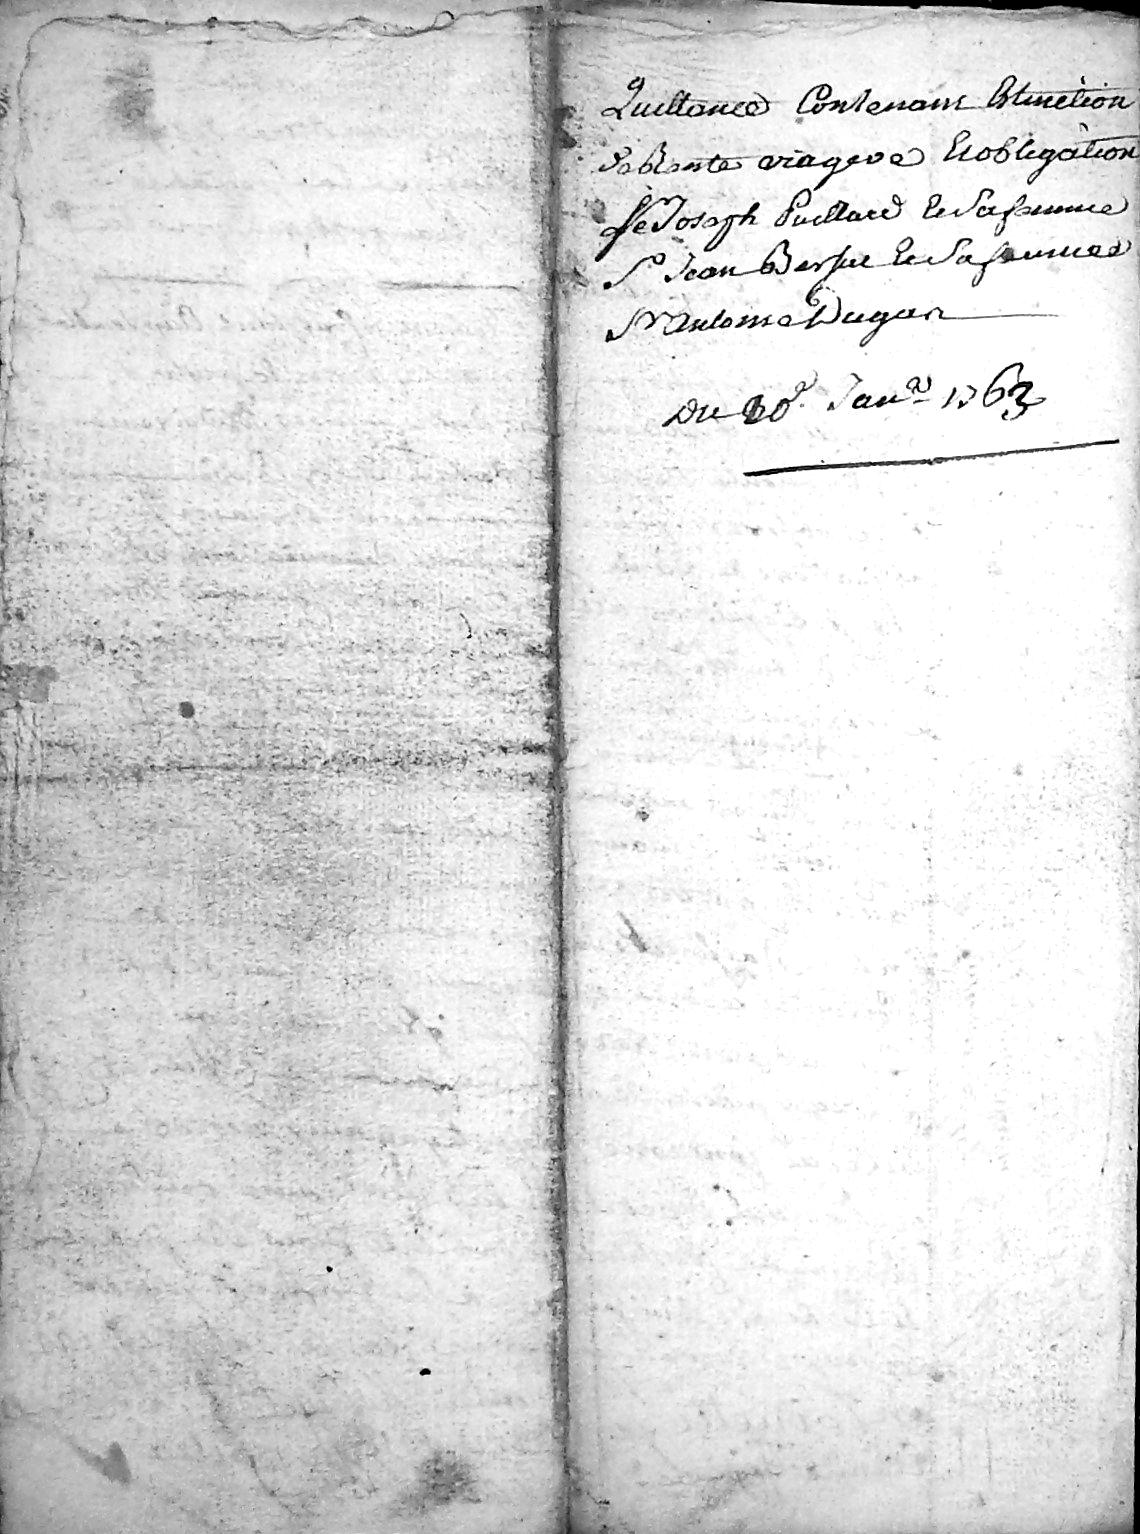 Quittance Contenant Extinction
de Rente viagere Et obligation
Sr Joseph Paillard Et Sa femme
Sr Jean Et Sa femme
Sr Antoine Dugas
Du 20e Janer 1763